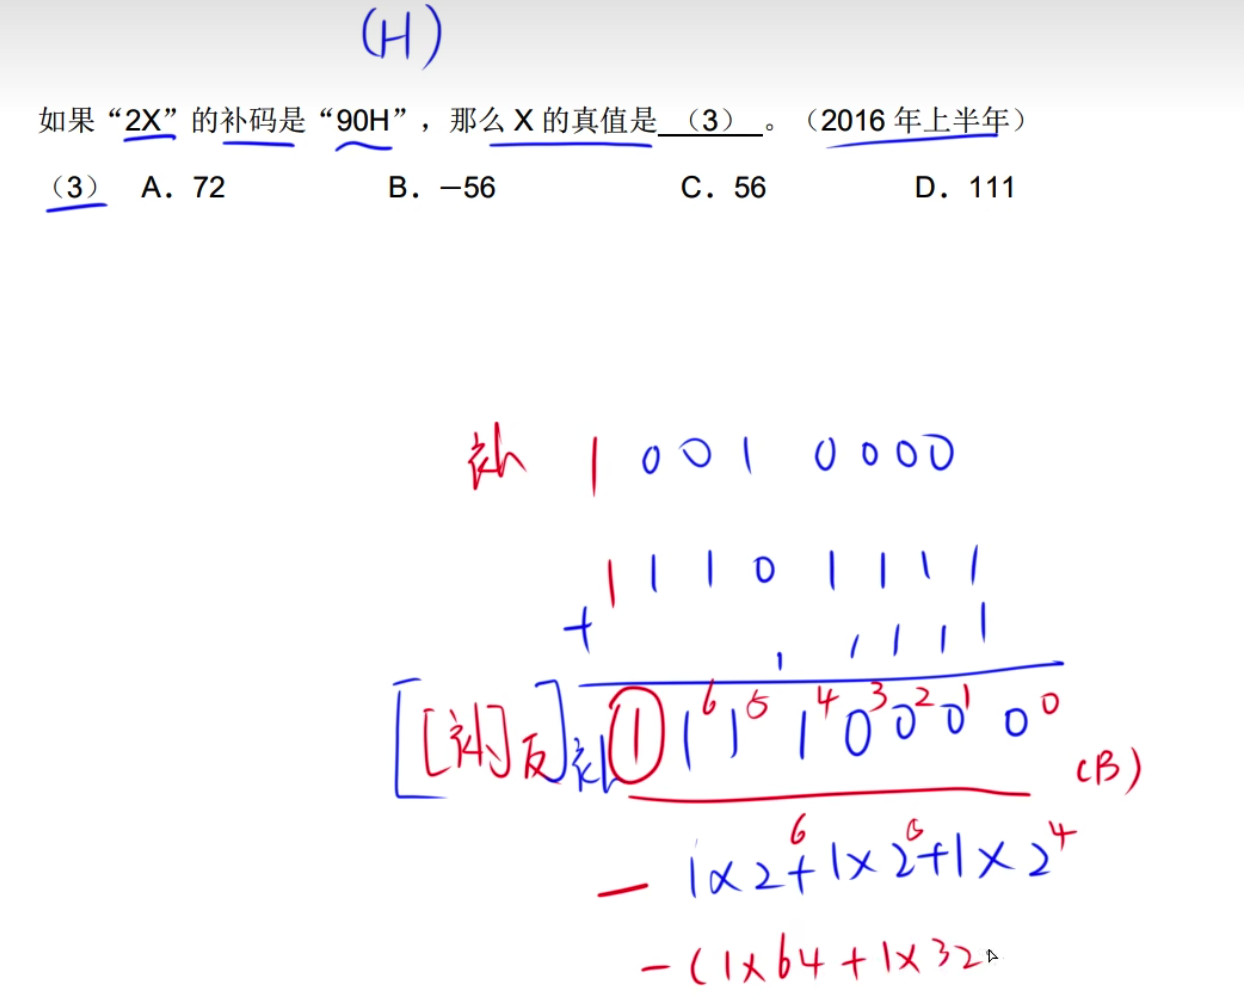 (H)
如果“2X”的补码是“90H”，那么 X 的真值是 （3） 。（2016 年上半年）
（3） A．72 B．—56 C．56 D．111
补 1 0 0 1 0 0 0 0
1 1 1 0 1 1 1 1
+ 1 1 1 1 1
[[补]反]补 1 1 6 1 5 1 4 0 3 0 2 0 1 0 0
(B)
— 1×2^6+1×2^5+1×2^4
—(1×64+1×32